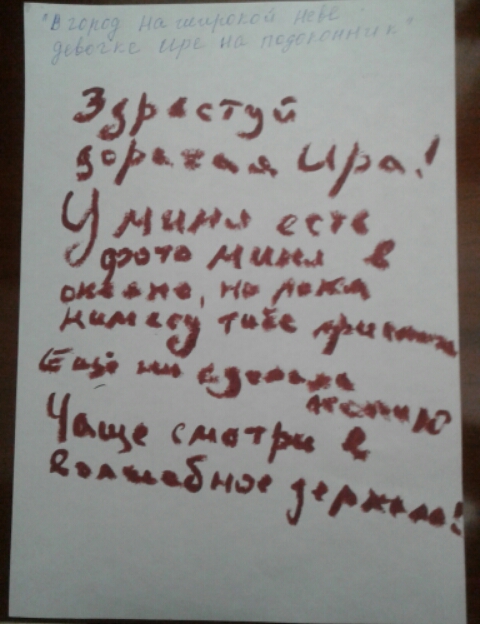 "В город на широкой Неве
девочке Ире на подоконник"
Здраствуй
доратая Ира!
У миня есть
фото миня в
океане, но пока
нимагу тибе прислать
Ещё ни сделала
копию
Чаще смотри в
волшабное зеркало!